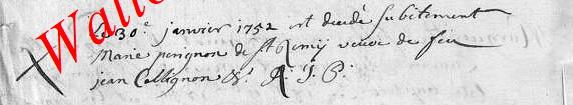 Le 30e janvier 1752 est decedé subitement
Marie perignon de St Remÿ veuve de feu
jean Collignon &. R. I. P.